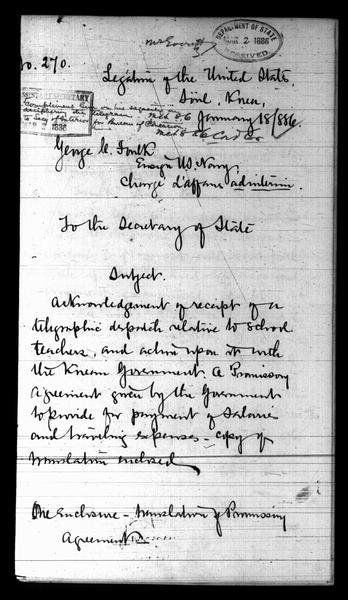 No. 270.
DEPARTMENT OF STATE
MAR 2 1886
RECEIVED
Legation of the United States,
Söul, Korea,
January 18/886.
Compliment him on his sagacity in
deciphering the telegram.
to Secy of Interior for Bureau of Education
Mch 8 86
George C. Foulk
Ensign U.S. Navy,
Chargé d'affaires ad interim.
To the Secretary of State
Subject.
Acknowledgement of receipt of a
telegraphic dispatch relative to school
teachers, and action upon it with
the Korean Government. A Promissory
agreement given by the Government
to provide for payment of Salaries
and traveling expenses - copy of
translation enclosed
One Enclosure - translation of Promissory
Agreement